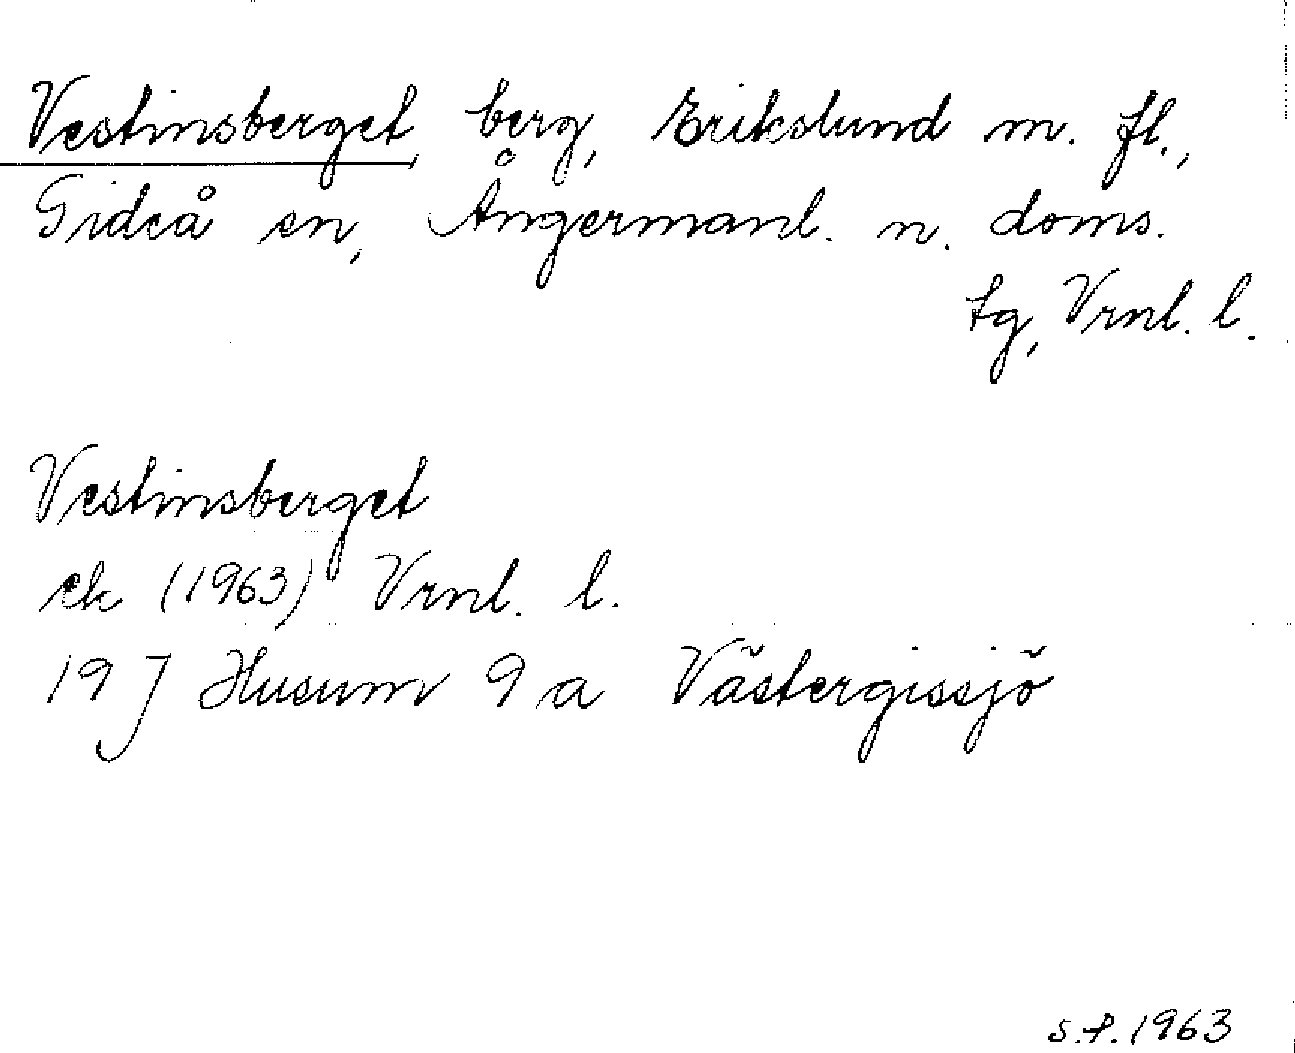 Vestinsberget, berg, Erikslund m. fl.,
Gideå sn, Ångermanl. n. doms.
tg, Vrnl. l.
Vestinsberget
ek (1963) Vrnl. l.
19 J Husum 9 a Västergissjö
S.P. 1963